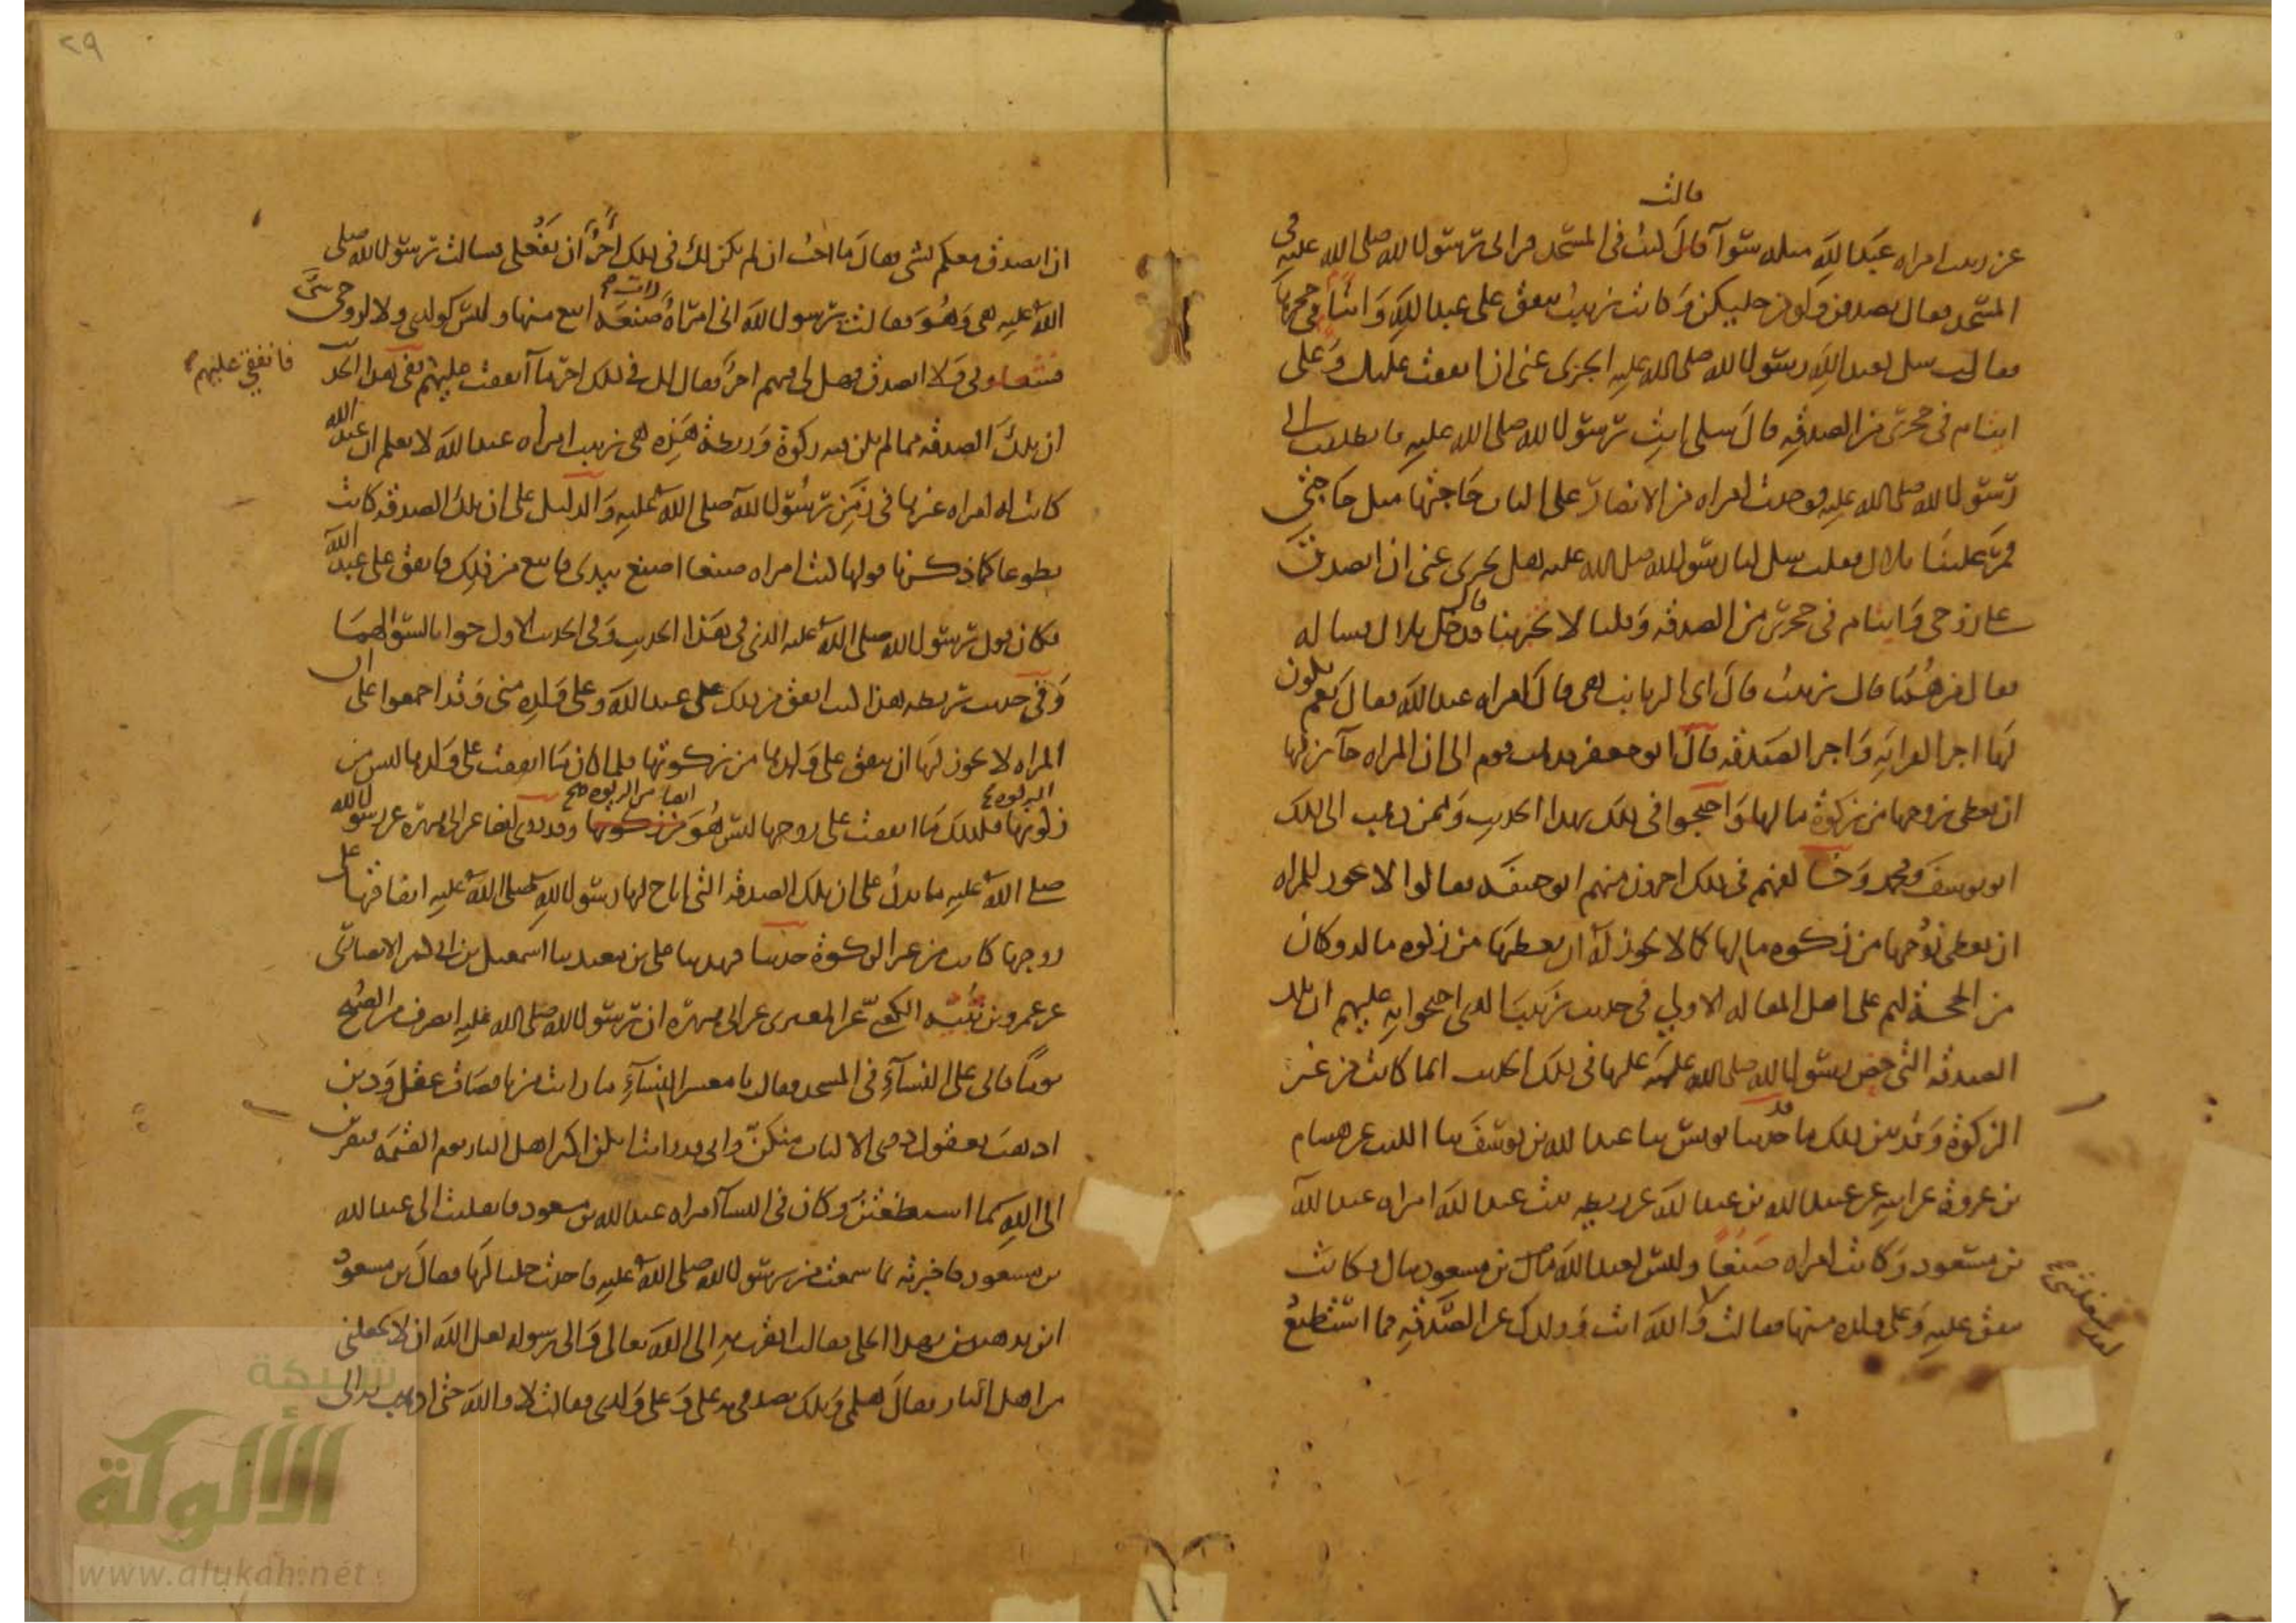 قالت
عن زينب امراه عبد الله مثله سوآ قال كنت في المسجد فرآني رسول الله صلى الله عليه في
المسجد فقال تصدقن ولو من حليكن وكانت زينب تنفق على عبد الله وايتام في حجرها
فقالت سل لعبد الله رسول الله صلى الله عليه ايجزى عنى ان انفقت عليك وعلى
ايتام في حجري من الصدقه قال سلي انت رسول الله صلى الله عليه فانطلقت الى
رسول الله صلى الله عليه فوجدت امراه من الانصار على الباب حاجتها مثل حاجتي
فمر علينا بلال فقلت سل لنا رسول الله صلى الله عليه هل يجزى عنى ان اتصدق
على زوجي وايتام في حجري من الصدقه وقلنا لا تخبر بنا قال فدخل بلال فساله
فقال من هما قال زينب قال اى الزيانب هي قال امراه عبد الله فقال نعم يكون
لها اجر القرابه واجر الصدقه قال ابو جعفر فذهب قوم الى ان المراه جآئز لها
ان تعطى زوجها من زكوة مالها واحتجوا في ذلك بهذا الحديث وممن ذهب الى ذلك
ابو يوسف ومحمد وخالفهم في ذلك اخرون منهم ابو حنيفه فقالوا لا يجوز للمراه
ان تعطى زوجها من زكوه مالها كما لا يجوز له ان يعطيها من زكوه ماله وكان
من الحجة لهم على اهل المقاله الاولي في حديث زينب الذى احتجوا به عليهم ان تلك
الصدقه التي حض رسول الله صلى الله عليه عليها في ذلك الحديث انما كانت من غير
الزكوة وقد بين ذلك ما قد حدثنا يونس ثنا عبد الله بن يوسف ثنا الليث عن هشام
بن عروة عن ابيه عن عبيد الله بن عبد الله عن ريطه بنت عبد الله امراه عبد الله
بن مسعود وكانت امراه صنعا وليس لعبد الله بن مسعود مال فكانت
تنفق عليه وعلى ولده منها فقالت والله انت وولدك عن الصدقه فما استطيع
لقد شغلتني
٢٩
ان اتصدق معكم بشى فقال ما احب ان لم يكن لك في ذلك اجر ان تفعلي فسالت رسول الله صلى
الله عليه هي وهو فقالت يرسول الله انى امراة ذات صنعه ابيع منها وليس لولدي ولا لزوجي شى
فشغلوني ولا اتصدق فهل لي فيهم اجر فقال لك في ذلك اجر ما انفقت عليهم ففى هذا الحديث
فانفقي عليهم
ان تلك الصدقه مما لم يكن فيه زكوة وريطة هذه هي زينب امراه عبد الله لا نعلم ان عبد الله
كانت له امراه غيرها في زمن رسول الله صلى الله عليه والدليل على ان تلك الصدقه كانت
تطوعا كما ذكرنا قولها كنت امراه صنعا اصنع بيدى فابيع من ذلك فانفق على عبد الله
فكان قول رسول الله صلى الله عليه الذي في هذا الحديث وفي الحديث الاول جوابا لسوالهما
وفي حديث ريطه هذا كنت انفق من ذلك على عبد الله وعلى ولده منى وقد اجمعوا على ان
المراه لا يجوز لها ان تنفق على ولدها من زكوتها فلما كان ما انفقت على ولدها ليس من
زكوتها فكذلك ما انفقت على زوجها ليس هو من زكوتها وقد روى ايضا عن ابي هريره عن رسول الله
صلى الله عليه ما يدل على ان تلك الصدقه التي اباح لها رسول الله صلى الله عليه انفاقها على
زوجها كانت من غير الزكوة حدثنا فهد ثنا على بن معبد ثنا اسمعيل بن ابي كثير الانصاري
عن عمرو بن نبيه الكعبي عن المقبرى عن ابي هريره ان رسول الله صلى الله عليه انصرف من الصبح
يوما فاتى على النسآء في المسجد فقال يا معشر النسآء ما رايت من ناقصات عقل ودين
اذهب بعقول ذوي الالباب منكن واني قد رايت انكن اكثر اهل النار يوم القيمه فتقربن
الى الله بما استطعتن وكان في النسآ امراه عبد الله بن مسعود فانقلبت الى عبد الله
بن مسعود فاخبرته بما سمعت من رسول الله صلى الله عليه واخذت حليا لها فقال بن مسعود
اين تذهبين بهذا الحلي فقالت اتقرب به الى الله تعالى والى رسوله لعل الله ان لا يجعلني
من اهل النار فقال هلمي ويلك تصدقي به على وعلى ولدى فقالت لا والله حتى اذهب به الى
شبكة
الألوكة
www.alukah.net